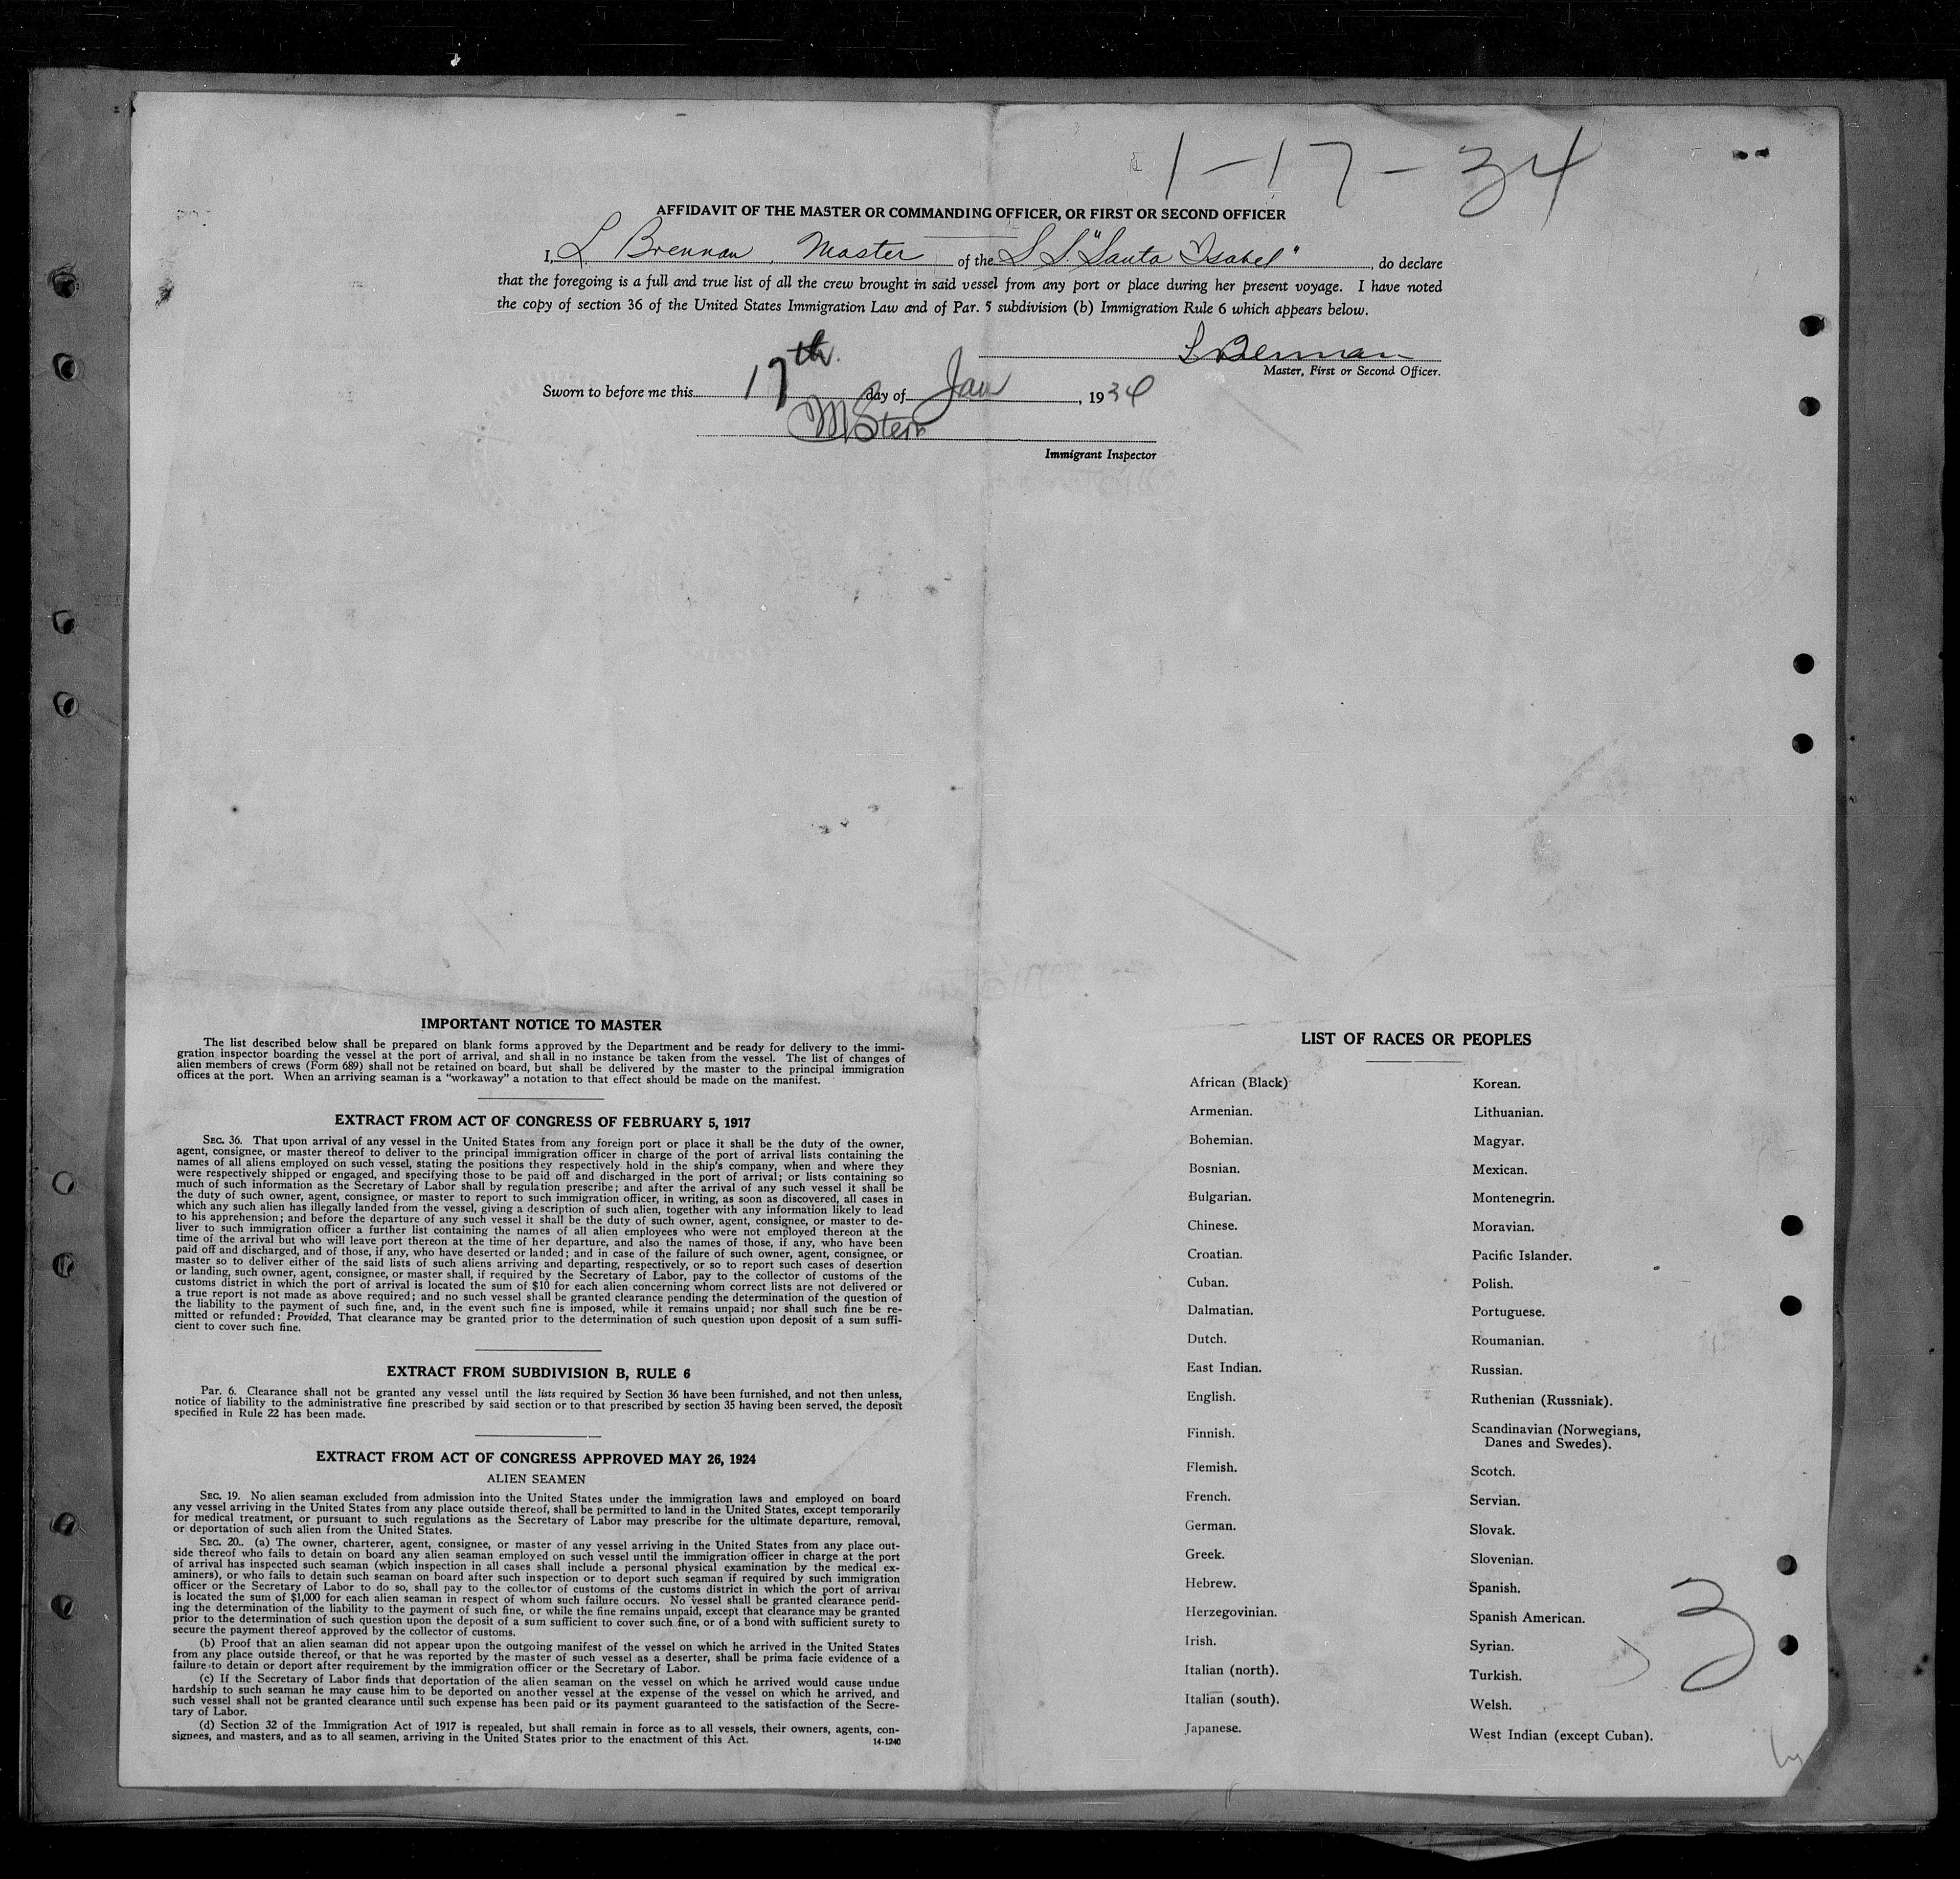 1-17-34
AFFIDAVIT OF THE MASTER OR COMMANDING OFFICER, OR FIRST OR SECOND OFFICER
I, L Brennan, Master of the S. S. "Santa Isabel", do declare
that the foregoing is a full and true list of all the crew brought in said vessel from any port or place during her present voyage. I have noted
the copy of section 36 of the United States Immigration Law and of Par. 5 subdivision (b) Immigration Rule 6 which appears below.
L Brennan
Master, First or Second Officer.
Sworn to before me this 17th day of Jan, 1934
M Stern
Immigrant Inspector
IMPORTANT NOTICE TO MASTER
The list described below shall be prepared on blank forms approved by the Department and be ready for delivery to the immi-
gration inspector boarding the vessel at the port of arrival, and shall in no instance be taken from the vessel. The list of changes of
alien members of crews (Form 689) shall not be retained on board, but shall be delivered by the master to the principal immigration
offices at the port. When an arriving seaman is a "workaway" a notation to that effect should be made on the manifest.
EXTRACT FROM ACT OF CONGRESS OF FEBRUARY 5, 1917
SEC. 36. That upon arrival of any vessel in the United States from any foreign port or place it shall be the duty of the owner,
agent, consignee, or master thereof to deliver to the principal immigration officer in charge of the port of arrival lists containing the
names of all aliens employed on such vessel, stating the positions they respectively hold in the ship's company, when and where they
were respectively shipped or engaged, and specifying those to be paid off and discharged in the port of arrival; or lists containing so
much of such information as the Secretary of Labor shall by regulation prescribe; and after the arrival of any such vessel it shall be
the duty of such owner, agent, consignee, or master to report to such immigration officer, in writing, as soon as discovered, all cases in
which any such alien has illegally landed from the vessel, giving a description of such alien, together with any information likely to lead
to his apprehension; and before the departure of any such vessel it shall be the duty of such owner, agent, consignee, or master to de-
liver to such immigration officer a further list containing the names of all alien employees who were not employed thereon at the
time of the arrival but who will leave port thereon at the time of her departure, and also the names of those, if any, who have been
paid off and discharged, and of those, if any, who have deserted or landed; and in case of the failure of such owner, agent, consignee, or
master so to deliver either of the said lists of such aliens arriving and departing, respectively, or so to report such cases of desertion
or landing, such owner, agent, consignee, or master shall, if required by the Secretary of Labor, pay to the collector of customs of the
customs district in which the port of arrival is located the sum of $10 for each alien concerning whom correct lists are not delivered or
a true report is not made as above required; and no such vessel shall be granted clearance pending the determination of the question of
the liability to the payment of such fine, and, in the event such fine is imposed, while it remains unpaid; nor shall such fine be re-
mitted or refunded: Provided, That clearance may be granted prior to the determination of such question upon deposit of a sum suffi-
cient to cover such fine.
EXTRACT FROM SUBDIVISION B, RULE 6
Par. 6. Clearance shall not be granted any vessel until the lists required by Section 36 have been furnished, and not then unless,
notice of liability to the administrative fine prescribed by said section or to that prescribed by section 35 having been served, the deposit
specified in Rule 22 has been made.
EXTRACT FROM ACT OF CONGRESS APPROVED MAY 26, 1924
ALIEN SEAMEN
SEC. 19. No alien seaman excluded from admission into the United States under the immigration laws and employed on board
any vessel arriving in the United States from any place outside thereof, shall be permitted to land in the United States, except temporarily
for medical treatment, or pursuant to such regulations as the Secretary of Labor may prescribe for the ultimate departure, removal,
or deportation of such alien from the United States.
SEC. 20.. (a) The owner, charterer, agent, consignee, or master of any vessel arriving in the United States from any place out-
side thereof who fails to detain on board any alien seaman employed on such vessel until the immigration officer in charge at the port
of arrival has inspected such seaman (which inspection in all cases shall include a personal physical examination by the medical ex-
aminers), or who fails to detain such seaman on board after such inspection or to deport such seaman if required by such immigration
officer or the Secretary of Labor to do so, shall pay to the collector of customs of the customs district in which the port of arrival
is located the sum of $1,000 for each alien seaman in respect of whom such failure occurs. No vessel shall be granted clearance pend-
ing the determination of the liability to the payment of such fine, or while the fine remains unpaid, except that clearance may be granted
prior to the determination of such question upon the deposit of a sum sufficient to cover such fine, or of a bond with sufficient surety to
secure the payment thereof approved by the collector of customs.
(b) Proof that an alien seaman did not appear upon the outgoing manifest of the vessel on which he arrived in the United States
from any place outside thereof, or that he was reported by the master of such vessel as a deserter, shall be prima facie evidence of a
failure to detain or deport after requirement by the immigration officer or the Secretary of Labor.
(c) If the Secretary of Labor finds that deportation of the alien seaman on the vessel on which he arrived would cause undue
hardship to such seaman he may cause him to be deported on another vessel at the expense of the vessel on which he arrived, and
such vessel shall not be granted clearance until such expense has been paid or its payment guaranteed to the satisfaction of the Secre-
tary of Labor.
(d) Section 32 of the Immigration Act of 1917 is repealed, but shall remain in force as to all vessels, their owners, agents, con-
signees, and masters, and as to all seamen, arriving in the United States prior to the enactment of this Act.
14-1240
LIST OF RACES OR PEOPLES
African (Black)
Armenian.
Bohemian.
Bosnian.
Bulgarian.
Chinese.
Croatian.
Cuban.
Dalmatian.
Dutch.
East Indian.
English.
Finnish.
Flemish.
French.
German.
Greek.
Hebrew.
Herzegovinian.
Irish.
Italian (north).
Italian (south).
Japanese.
Korean.
Lithuanian.
Magyar.
Mexican.
Montenegrin.
Moravian.
Pacific Islander.
Polish.
Portuguese.
Roumanian.
Russian.
Ruthenian (Russniak).
Scandinavian (Norwegians,
Danes and Swedes).
Scotch.
Servian.
Slovak.
Slovenian.
Spanish.
Spanish American.
Syrian.
Turkish.
Welsh.
West Indian (except Cuban).
3